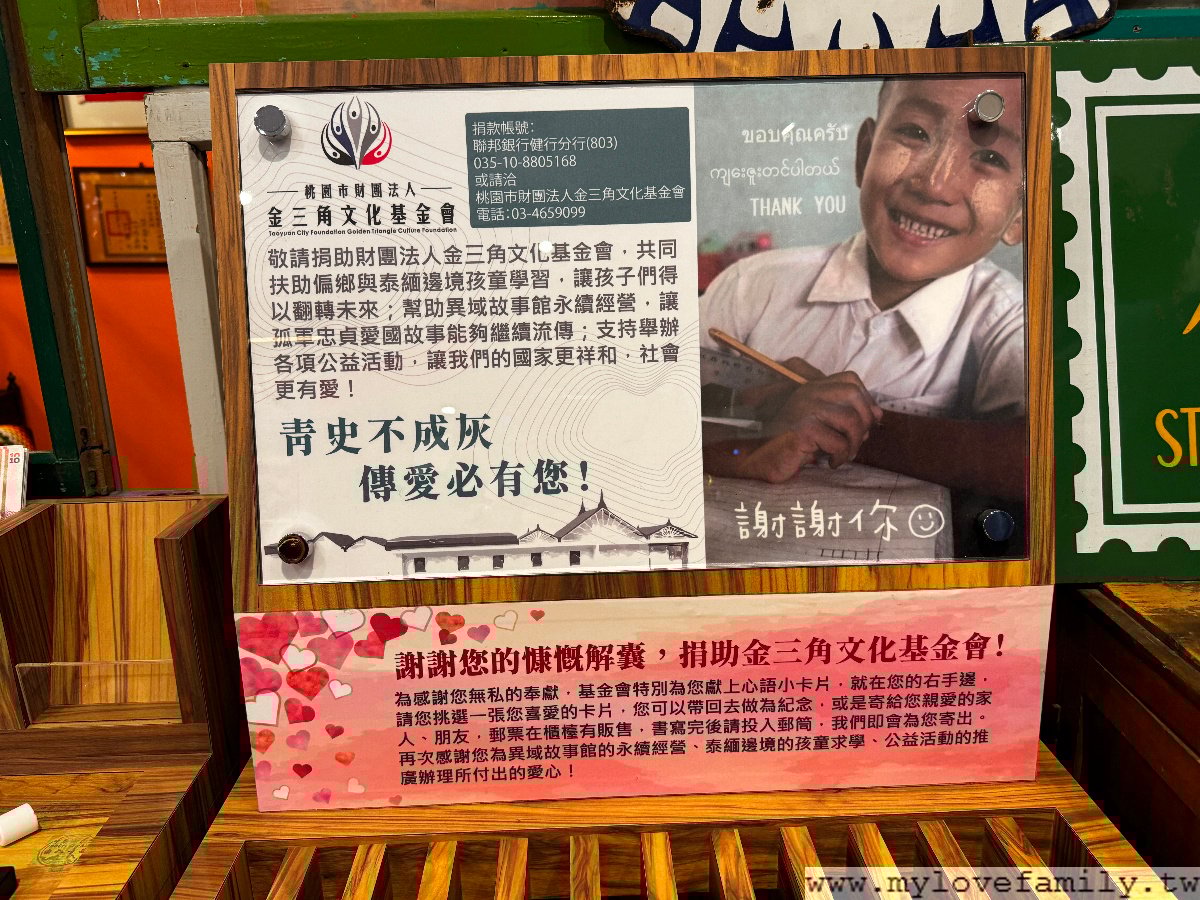 桃園市財團法人
金三角文化基金會
Taoyuan City Foundation Golden Triangle Culture Foundation
捐款帳號:
聯邦銀行健行分行(803)
035-10-8805168
或請洽
桃園市財團法人金三角文化基金會
電話:03-4659099
敬請捐助財團法人金三角文化基金會，共同
扶助偏鄉與泰緬邊境孩童學習，讓孩子們得
以翻轉未來；幫助異域故事館永續經營，讓
孤軍忠貞愛國故事能夠繼續流傳；支持舉辦
各項公益活動，讓我們的國家更祥和，社會
更有愛！
青史不成灰
傳愛必有您！
ขอบคุณครับ
ကျေးဇူးတင်ပါတယ်
THANK YOU
謝謝你
ST
謝謝您的慷慨解囊，捐助金三角文化基金會！
為感謝您無私的奉獻，基金會特別為您獻上心語小卡片，就在您的右手邊，
請您挑選一張您喜愛的卡片，您可以帶回去做為紀念，或是寄給您親愛的家
人、朋友，郵票在櫃檯有販售，書寫完後請投入郵筒，我們即會為您寄出。
再次感謝您為異域故事館的永續經營、泰緬邊境的孩童求學、公益活動的推
廣辦理所付出的愛心！
www.mylovefamily.tw